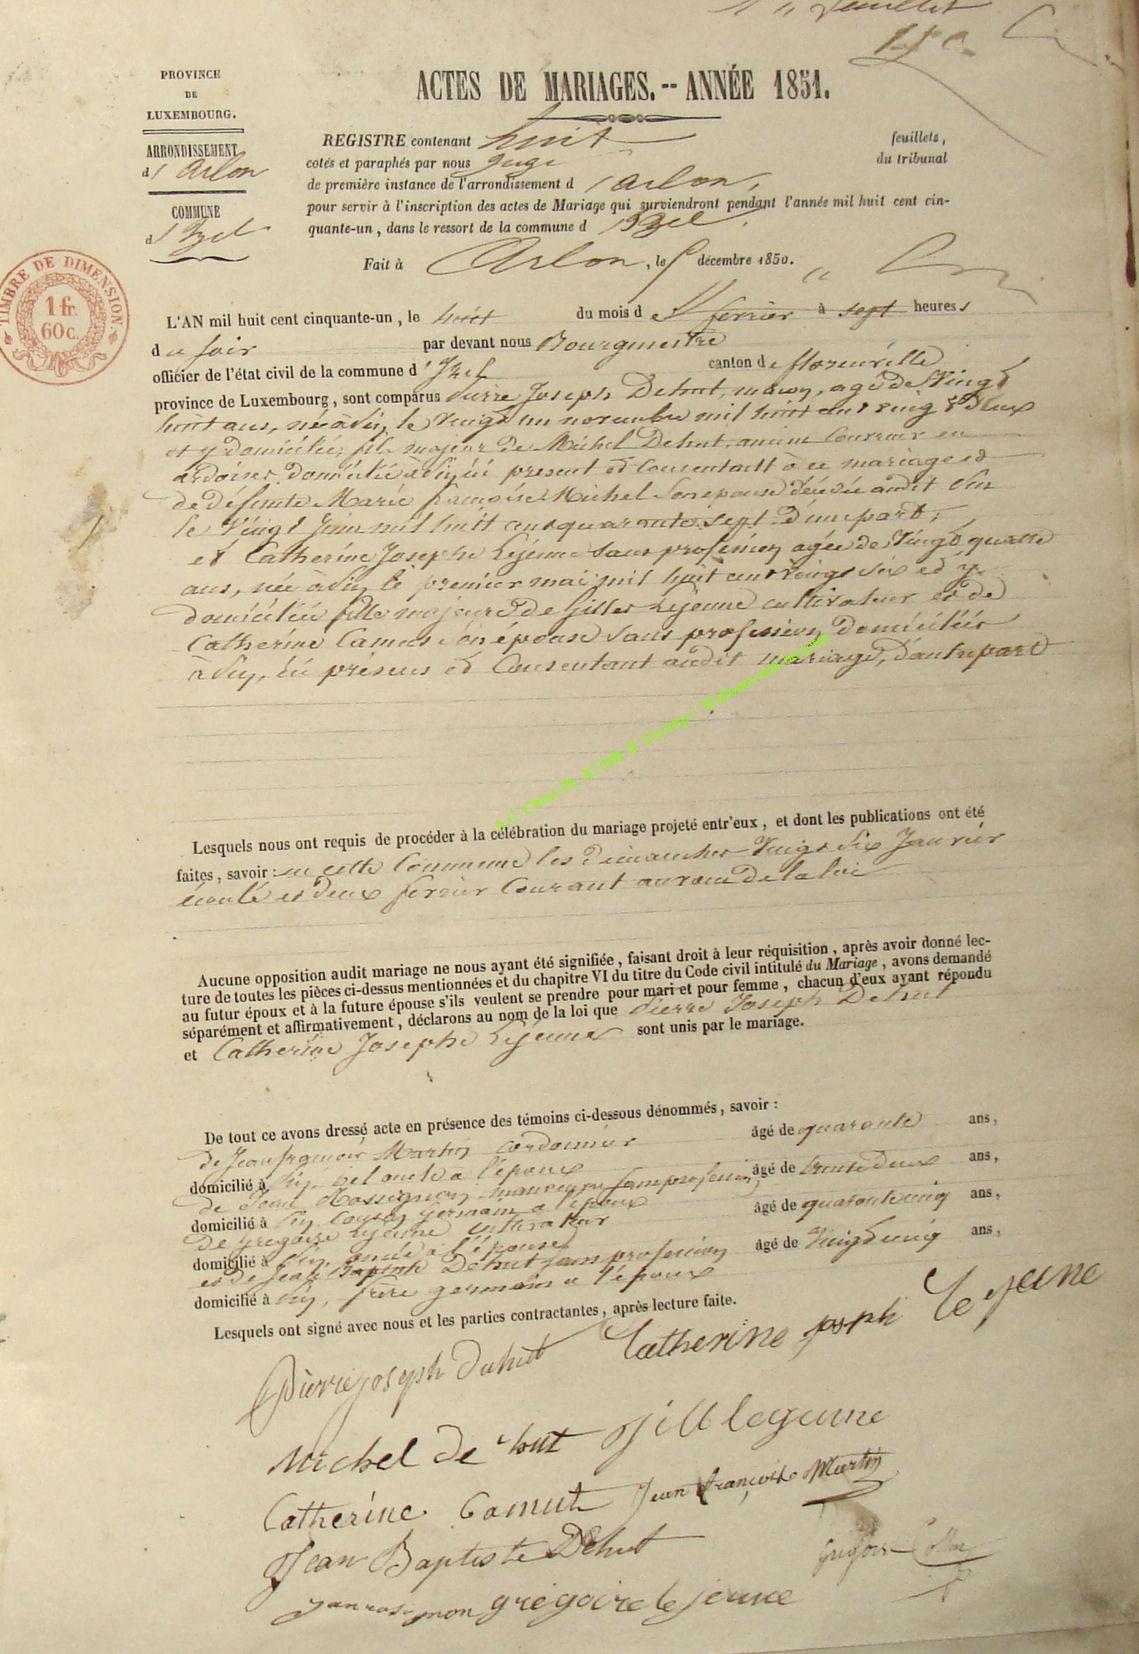 1er feuillet
PROVINCE
DE
LUXEMBOURG.
ARRONDISSEMENT
d'Arlon
COMMUNE
d'Izel
TIMBRE DE DIMENSION
1 fr.
60c.
ACTES DE MARIAGES.-- ANNÉE 1851.
REGISTRE contenant huit feuillets,
cotés et paraphés par nous Juge du tribunal
de première instance de l'arrondissement d'Arlon,
pour servir à l'inscription des actes de Mariage qui surviendront pendant l'année mil huit cent cin-
quante-un, dans le ressort de la commune d'Izel.
Fait à Arlon, le 5 décembre 1850.
L'AN mil huit cent cinquante-un, le huit du mois de fevrier à sept heures
du soir par devant nous Bourgmestre
officier de l'état civil de la commune d'Izel canton de florenville
province de Luxembourg, sont comparus Pierre Joseph Dehut, maçon, agé de Vingt
huit ans, né à Pin, le Vingt un novembre mil huit cent vingt Deux
et y domicilié, fils majeur de Michel Dehut, ancien Couvreur en
ardoises Domicilié à Pin ici present et Consentant à ce mariage et
de défunte Marie françoise Michel Son épouse décédée audit Pin
le Vingt Juin mil huit cent quarante sept D'une part,
et Catherine Josephe Lejeune Sans profession agée de Vingt quatre
ans, née à Pin, le premier mai mil huit cent vingt Six et y
domiciliée fille majeure de Gilles Lejeune cultivateur et de
Catherine Camus Son épouse Sans profession Domiciliés
à Pin, ici présens et Consentant audit mariage, D'autre part
A.C. Chiny
Lesquels nous ont requis de procéder à la célébration du mariage projeté entr'eux, et dont les publications ont été
faites, savoir: en cette Commune les Dimanches Vingt Six Janvier
écoulé et Deux fevrier Courant au vœu De la loi
Aucune opposition audit mariage ne nous ayant été signifiée, faisant droit à leur réquisition, après avoir donné lec-
ture de toutes les pièces ci-dessus mentionnées et du chapitre VI du titre du Code civil intitulé du Mariage, avons demandé
au futur époux et à la future épouse s'ils veulent se prendre pour mari et pour femme, chacun d'eux ayant répondu
séparément et affirmativement, déclarons au nom de la loi que Pierre Joseph Dehut
et Catherine Josephe Lejeune sont unis par le mariage.
De tout ce avons dressé acte en présence des témoins ci-dessous dénommés, savoir:
de Jean françois Martin Cordonnier âgé de quarante ans,
domicilié à Pin, bel oncle a l'époux
de Jean Rossignon sans profession âgé de trente deux ans,
domicilié à Pin, Cousin germain a l'époux
De Gregoire Lejeune Cultivateur âgé de quarante cinq ans,
domicilié à Pin, oncle a l'épouse
et de Jean Baptiste Dehut sans profession âgé de Vingt cinq ans,
domicilié à Pin, frère germain a l'époux
Lesquels ont signé avec nous et les parties contractantes, après lecture faite.
Pierre joseph Dehut Catherine joseph Le jeune
Michel De hut Gill lejeune
Catherine Camut Jean françois Martin
Jean Baptiste Dehut
gregoire le jeune